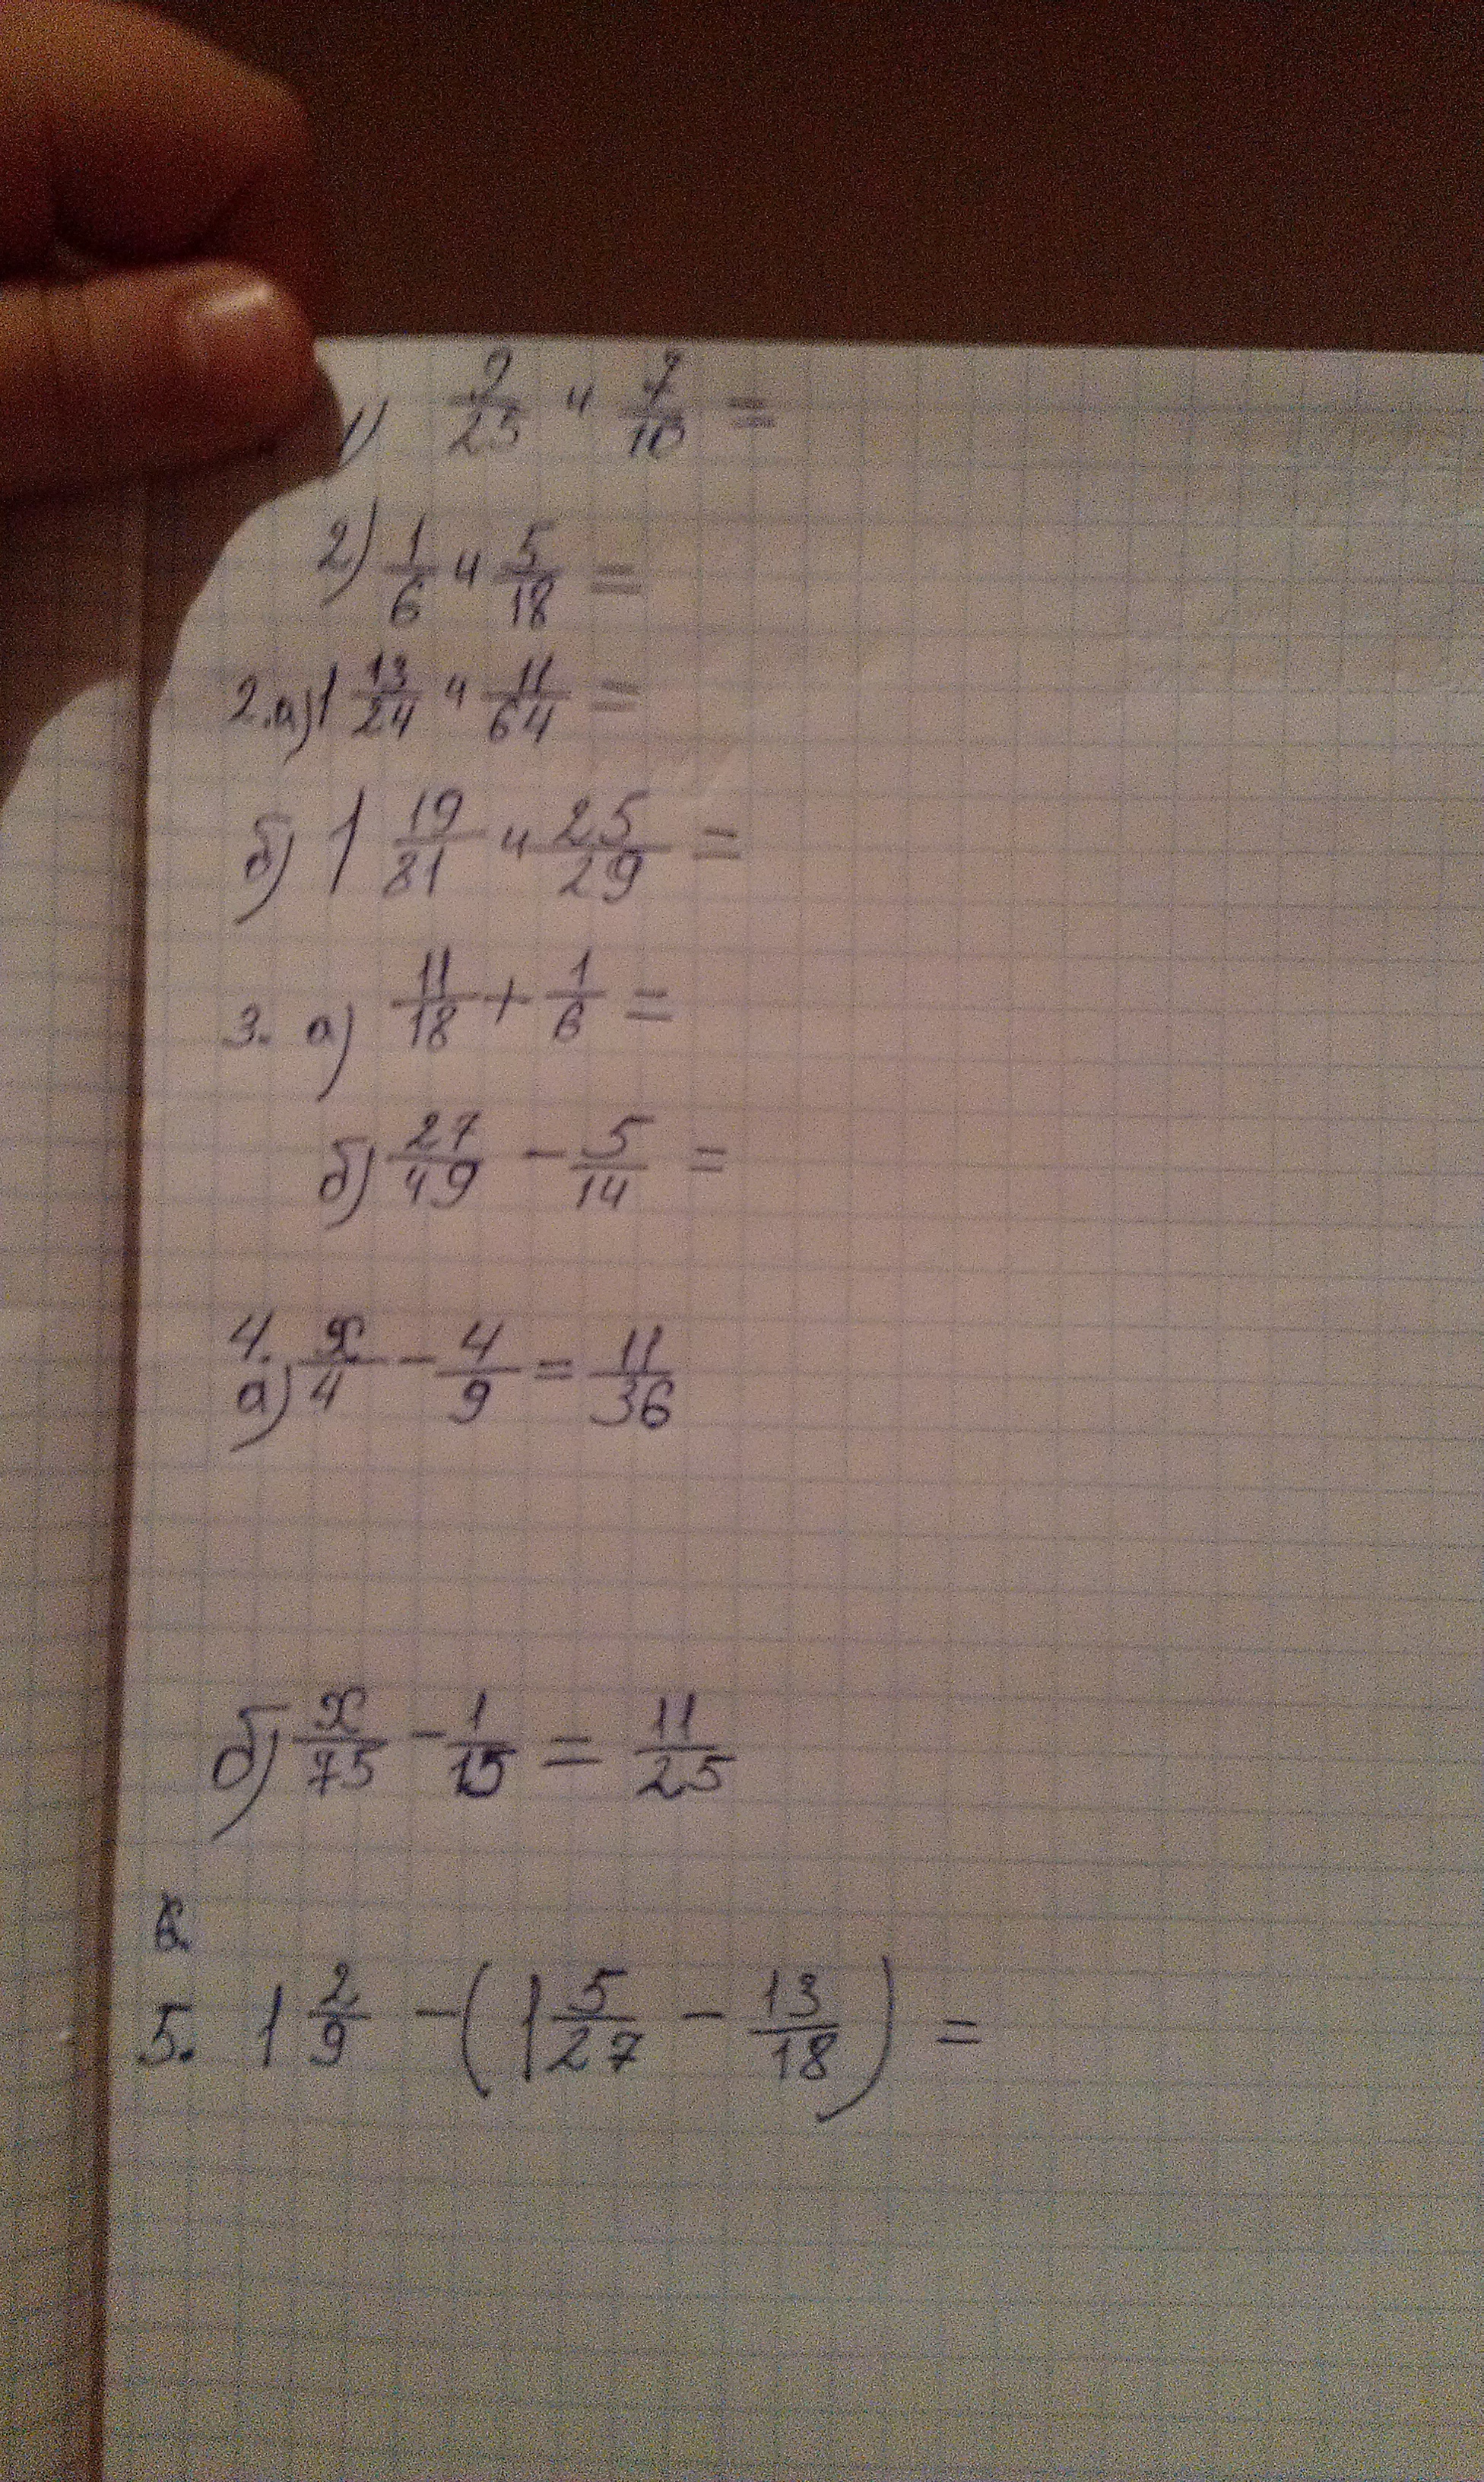 1) 9/25 и 7/10 =
2) 1/6 и 5/18 =
2. а) 1 13/24 и 11/64 =
б) 1 19/81 и 25/29 =
3. а) 11/18 + 1/6 =
б) 27/49 - 5/14 =
4.
а) x/4 - 4/9 = 11/36
б) x/75 - 1/15 = 11/25
5. 1 2/9 - (1 5/27 - 13/18) =